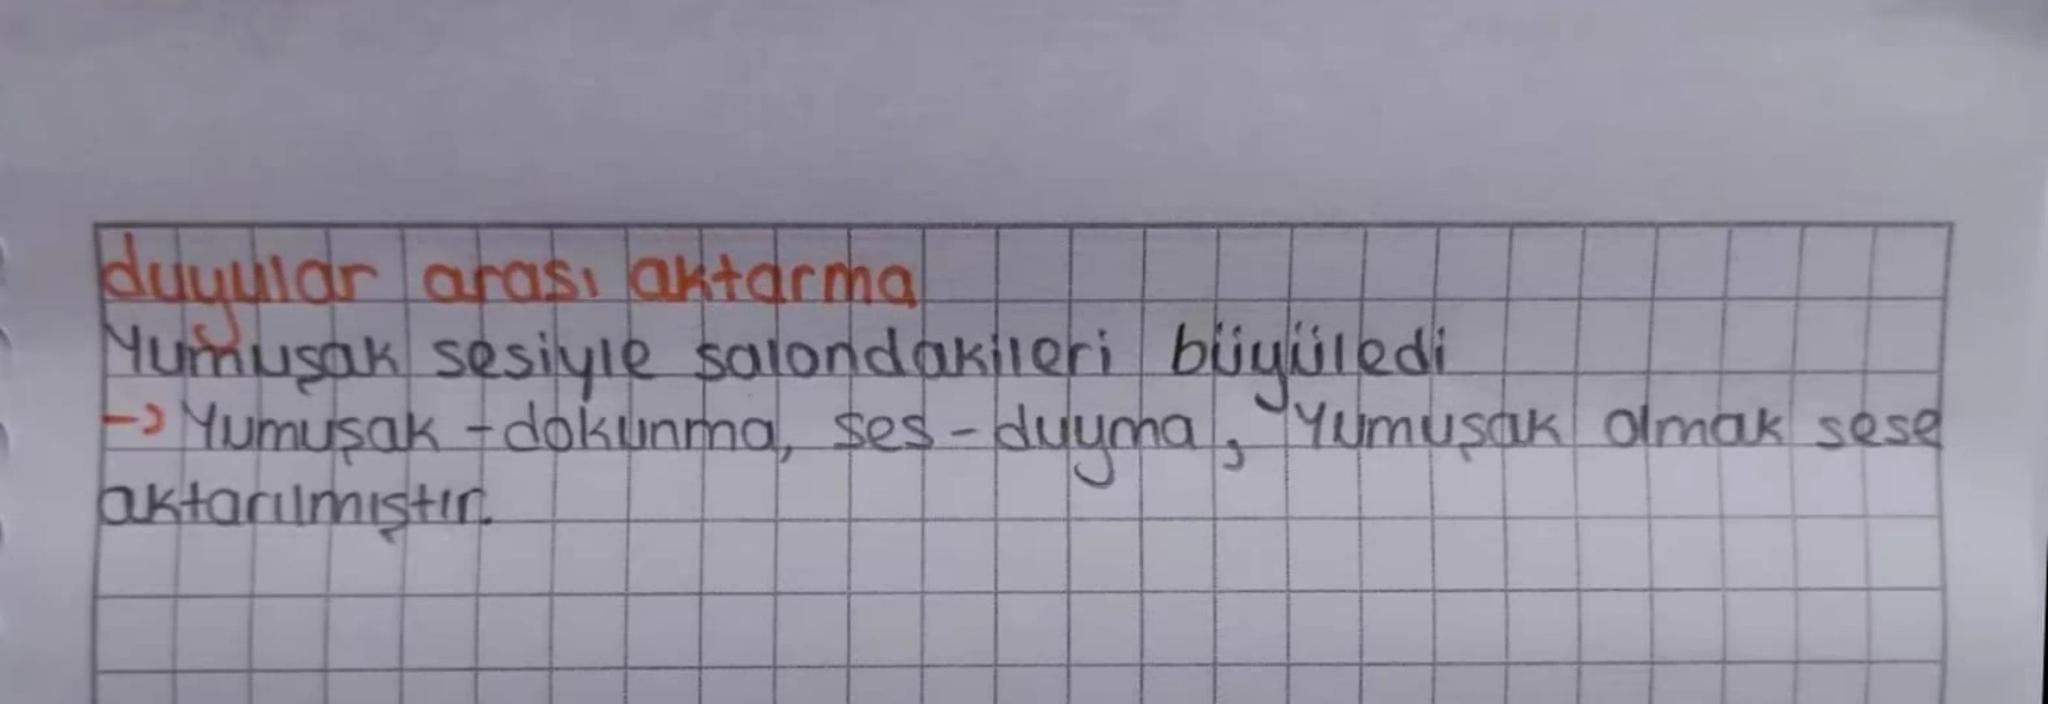 duyular arası aktarma
Yumuşak sesiyle salondakileri büyüledi
→ Yumuşak - dokunma, ses - duyma, Yumuşak olmak sese
aktarılmıştır.